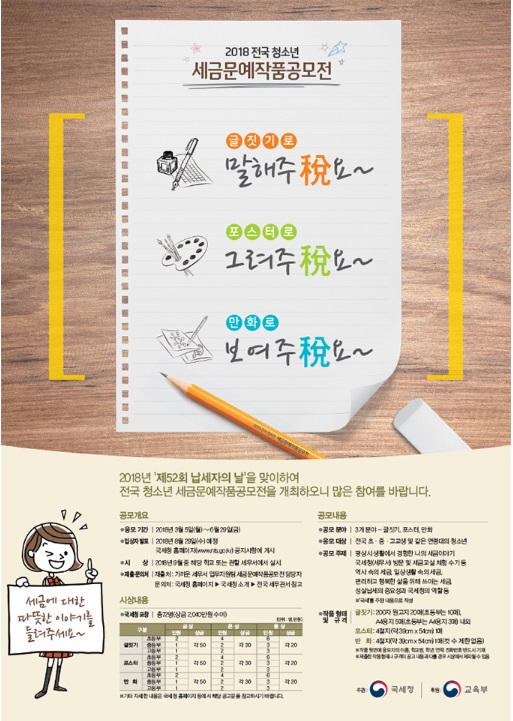 2018 전국 청소년
세금문예작품공모전
글짓기로
말해주稅요~
포스터로
그려주稅요~
만화로
보여주稅요~
2018년 '제52회 납세자의 날'을 맞이하여
전국 청소년 세금문예작품공모전을 개최하오니 많은 참여를 바랍니다.
공모개요
응모 기간 | 2018년 3월 5일(월) ~ 6월 29일(금)
입상자 발표 | 2018년 8월 29일(수) 예정
국세청 홈페이지(www.nts.go.kr) 공지사항에 게시
시 상 | 2018년 9월 중 해당 학교 또는 관할 세무서에서 실시
제출·문의처 | 제출 : 가까운 세무서 업무지원팀 세금문예작품공모전 담당자
문의처 : 국세청 홈페이지 ▶ 국세청 소개 ▶ 전국 세무관서 참고
시상내용
국세청장 |
(단위 : 명, 만원)
구분 금상 은상 동상
인원 상금 인원 상금 인원 상금
글짓기 초등부 2 각 50 4 각 30 6 각 20
중등부 1 2 3
고등부 1 2 3
포스터 초등부 2 각 50 4 각 30 6 각 20
중등부 1 2 3
고등부 1 2 3
만 화 초등부 2 각 50 4 각 30 6 각 20
중등부 1 2 3
고등부 1 2 3
※기타 자세한 내용은 국세청 홈페이지 등에서 해당 공고문을 참고하시기 바랍니다.
공모내용
공모 분야 | 3개 분야 - 글짓기, 포스터, 만화
응모 대상 | 전국 초·중·고교생 및 같은 연령대의 청소년
공모 주제 | 평상시 생활에서 경험한 나의 세금이야기
국세청(세무서) 방문 및 세금교실 체험 수기 등
역사 속의 세금, 일상생활 속의 세금,
편리하고 행복한 삶을 위해 쓰이는 세금,
성실납세의 중요성과 국세청의 역할 등
작품 형태 및 규격
글짓기: 200자 원고지 20매(초등부는 10매),
A4용지 5매(초등부는 A4용지 3매) 내외
포스터: 4절지(약 39cm x 54cm) 1매
만 화: 4절지(약 39cm x 54cm) 1매(컷 수 제한 없음)
세금에 대한
따뜻한 이야기를
들려주세요~
주관: 국세청 후원: 교육부